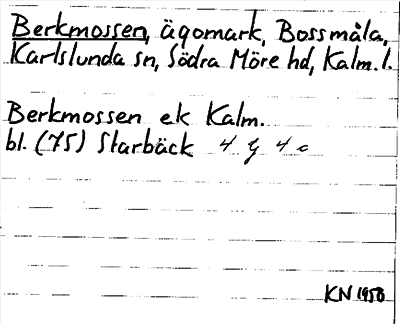 Berkmossen, ägomark, Bossmåla,
Karlslunda sn, Södra Möre hd, Kalm. l.
Berkmossen ek Kalm.
bl. (75) Starbäck 4 g 4 c
KN 1950